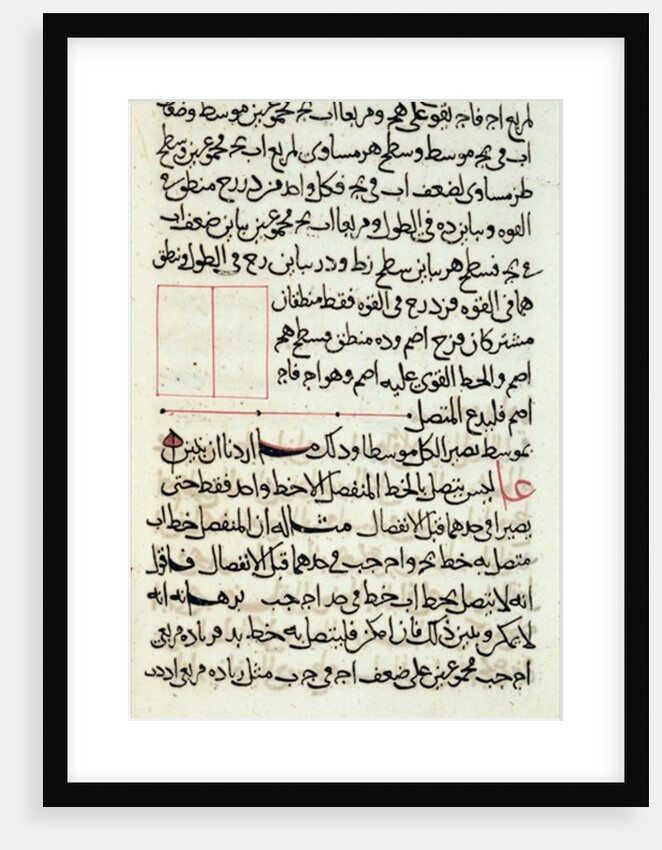 لمربع اج فاج يقوى على هج ومربعا اب بج مجموعين موسط وضعف
اب في بج موسط وسطح هر مساوى لمربع اب بج مجموعين وسطح
طز مساوى لضعف اب في بج فكل واحد من د ز رح منطق في
القوه ويباين ده في الطول ومربعا اب بج مجموعين يباين ضعف اب
في بج فسطح هر يباين سطح زط و در يباين رح في الطول ومنطق
هما في القوه فزد رح في القوه فقط منطقان
مشتركان فرح اصم وده منطق فسطح هج
اصم والخط القوى عليه اصم وهو اج فاج
اصم فليدع المتصل
بموسط يصير الكل موسطا وذلك ما اردنا ان نبين
عا ليس يتصل بالخط المنفصل الا خط واحد فقط حتى
يصيرا في حدهما قبل الانفصال مثاله ان المنفصل خط اب
متصل به خط بج و اج جب في حدهما قبل الانفصال فاقول
انه لا يتصل بخط اب خط في حد اج جب برهانه انه
لا يمكن وننزل ذلك فان امكن فليتصل به خط بد فزياده مربعى
اج جب مجموعين على ضعف اج في جب مثل زياده مربعى اد دب